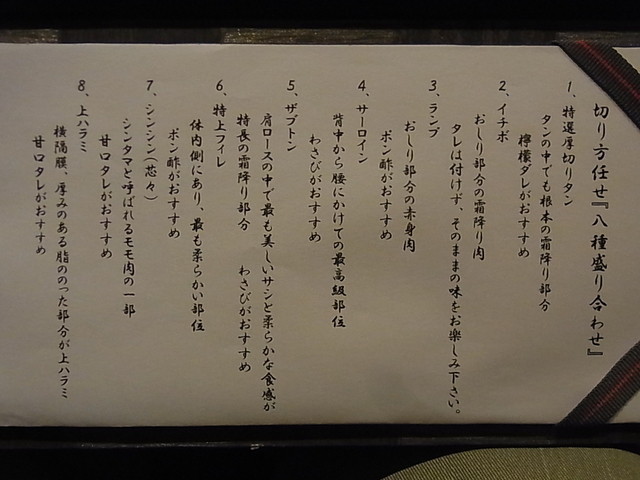 切り方任せ『八種盛り合わせ』
1、特選厚切りタン
タンの中でも根本の霜降り部分
檸檬ダレがおすすめ
2、イチボ
おしり部分の霜降り肉
タレは付けず、そのままの味をお楽しみ下さい。
3、ランプ
おしり部分の赤身肉
ポン酢がおすすめ
4、サーロイン
背中から腰にかけての最高級部位
わさびがおすすめ
5、ザブトン
肩ロースの中で最も美しいサシと柔らかな食感が
特長の霜降り部分　わさびがおすすめ
6、特上フィレ
体内側にあり、最も柔らかい部位
ポン酢がおすすめ
7、シンシン（芯々）
シンタマと呼ばれるモモ肉の一部
甘口タレがおすすめ
8、上ハラミ
横隔膜、厚みのある脂ののった部分が上ハラミ
甘口タレがおすすめ